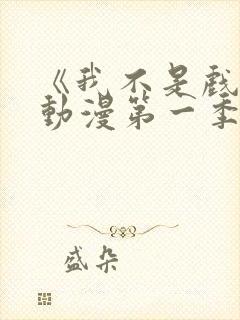 《我不是戲
動漫第一季
盛朵